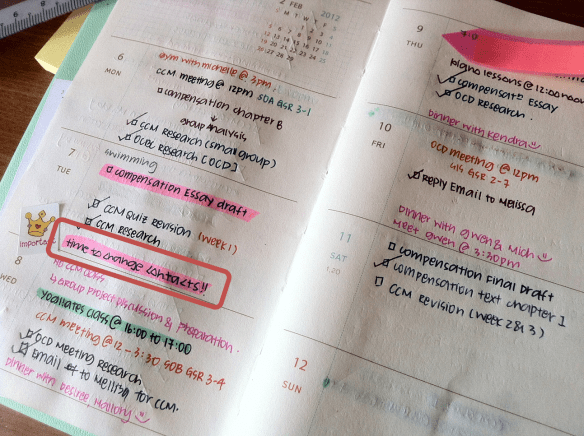 2 FEB
2012
6
MON
Gym with michelle @ 3pm
CCM meeting @ 12pm SOA GSR 3-1
compensation chapter 8
group analysis
CCM Research (small group)
OCBC Research [OCD]
7
TUE
swimming
compensation Essay draft
CCM Quiz Revision (week 1)
CCM Research
Important
time to change contacts!!
8
WED
NO CCM class
group project discussion & preparation.
yogilates class @ 16:00 to 17:00
CCM meeting @ 12 - 3:30 SOB GSR 3-4
OCD meeting Research
Email to Melissa for CCM.
Dinner with Desiree, Mallory
9
THU
piano lessons @ 12:00
compensate Essay
OCD Research.
Dinner with Kendra
10
FRI
OCD meeting @ 12pm
LIS GSR 2-7
Reply Email to Melissa
Dinner with Gwen & Mich
Meet Gwen @ 3:30pm
11
SAT
1.20
compensation Final Draft
compensation text chapter 1
CCM Revision (week 2 & 3)
12
SUN